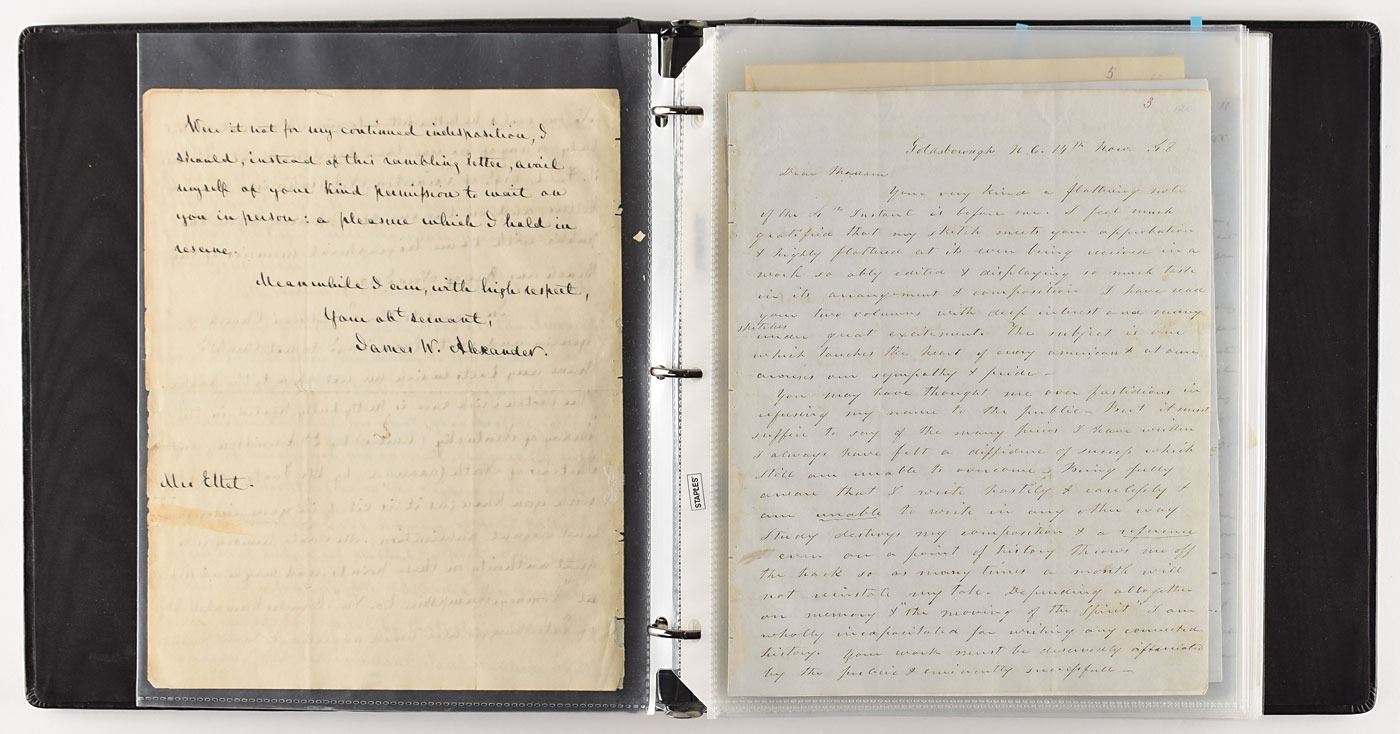 Were it not for my continued indisposition, I
should, instead of this rambling letter, avail
myself of your kind permission to wait on
you in person: a pleasure which I hold in
reserve.
Meanwhile I am, with high respect,
Your obt servant,
James W. Alexander.
Mrs Ellet.
STAPLES
5
3
Goldsborough N.C. 14th Nov. 48
Dear Madam
Your very kind & flattering note
of the 4th Instant is before me. I feel much
gratified that my sketch meets your approbation
& highly flattered at its ever being received in a
work so ably edited & displaying so much taste
in its arrangement & composition I have read
your two volumes with deep interest and many
sketches
under great excitement. The subject is one
which touches the heart of every american & at once
arouses our sympathy & pride -
You may have thought me over fastidious in
refusing my name to the public - But it must
suffice to say of the many pieces I have written
I always have felt a diffidence of success which
still am unable to overcome, Being fully
aware that I write hastily & carelessly &
am unable to write in any other way
Study destroys my composition & a reference
even on a point of history throws me off
the track so as many times a month will
not reinstate my tale - Depending altogether
on memory & "the moving of the Spirit" I am
wholly incapacitated for writing any connected
history. Your work must be deservedly appreciated
by the public & eminently successfull -